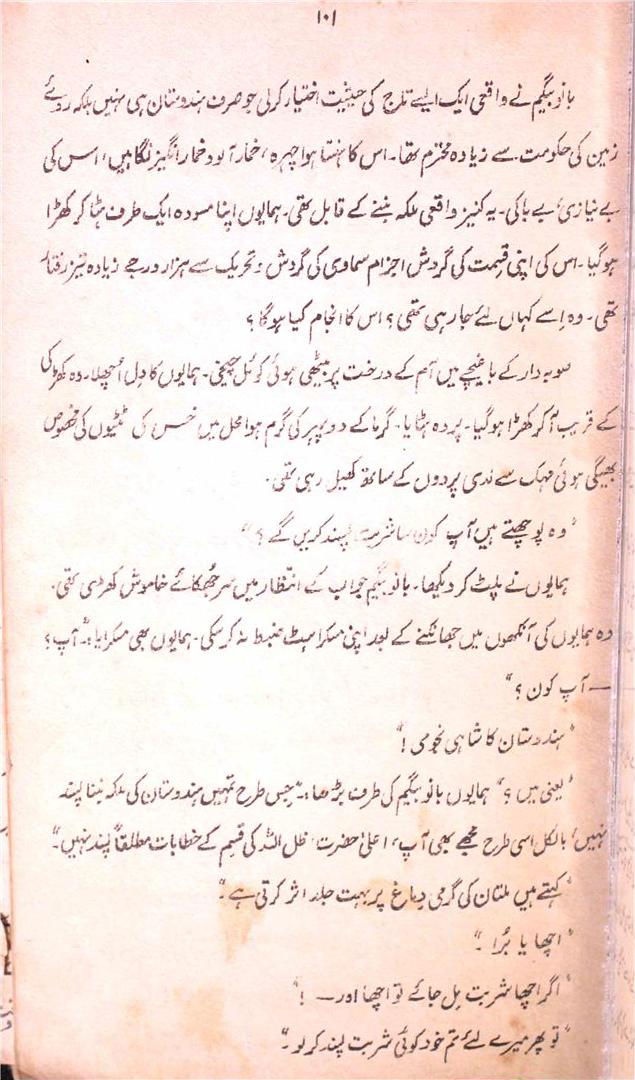 ۱۰۱
بانو بیگم نے واقعی ایک ایسے تاج کی حیثیت اختیار کر لی جو صرف ہندوستان ہی نہیں بلکہ روئے
زمین کی حکومت سے زیادہ محترم تھا۔ اس کا ہنستا ہوا چہرہ، خمار آلود خمار انگیز نگاہیں، اس کی
بے نیازی بے باکی۔ یہ کنیز واقعی ملکہ بننے کے قابل تھی۔ ہمایوں اپنا مسودہ ایک طرف ہٹا کر کھڑا
ہو گیا۔ اس کی اپنی قسمت کی گردش اجرام سماوی کی گردش و تحریک سے ہزار درجے زیادہ تیز رفتار
تھی۔ وہ اسے کہاں لئے جا رہی تھی؟ اس کا انجام کیا ہوگا؟
صوبہ دار کے باغیچے میں آم کے درخت پر بیٹھی ہوئی کوئل چیخی۔ ہمایوں کا دل اُچھلا۔ وہ کھڑکی
کے قریب آ کر کھڑا ہو گیا۔ پردہ ہٹایا۔ گرما کے دوپہر کی گرم ہوا محل میں خس کی ٹٹیوں کی مخصوص
بھیگی ہوئی مہک سے لدی پردوں کے ساتھ کھیل رہی تھی۔
"وہ پوچھتے ہیں آپ کون سا شربت پسند کریں گے؟"
ہمایوں نے پلٹ کر دیکھا۔ بانو بیگم جواب کے انتظار میں سر جھکائے خاموش کھڑی تھی۔
وہ ہمایوں کی آنکھوں میں جھانکنے کے بعد اپنی مسکراہٹ ضبط نہ کر سکی۔ ہمایوں بھی مسکرایا: "آپ؟
— آپ کون؟"
"ہندوستان کا شاہی نجومی!"
"یعنی میں؟" ہمایوں بانو بیگم کی طرف بڑھا: "جس طرح تمہیں ہندوستان کی ملکہ بننا پسند
نہیں، بالکل اسی طرح مجھے بھی آپ، اعلیٰ حضرت، ظل اللہ کی قسم کے خطابات مطلقاً پسند نہیں۔"
"کہتے ہیں ملتان کی گرمی دماغ پر بہت جلد اثر کرتی ہے۔"
"اچھا یا بُرا۔"
"اگر اچھا شربت مل جائے تو اچھا اور — !"
"تو پھر میرے لئے تم خود کوئی شربت پسند کر لو۔"